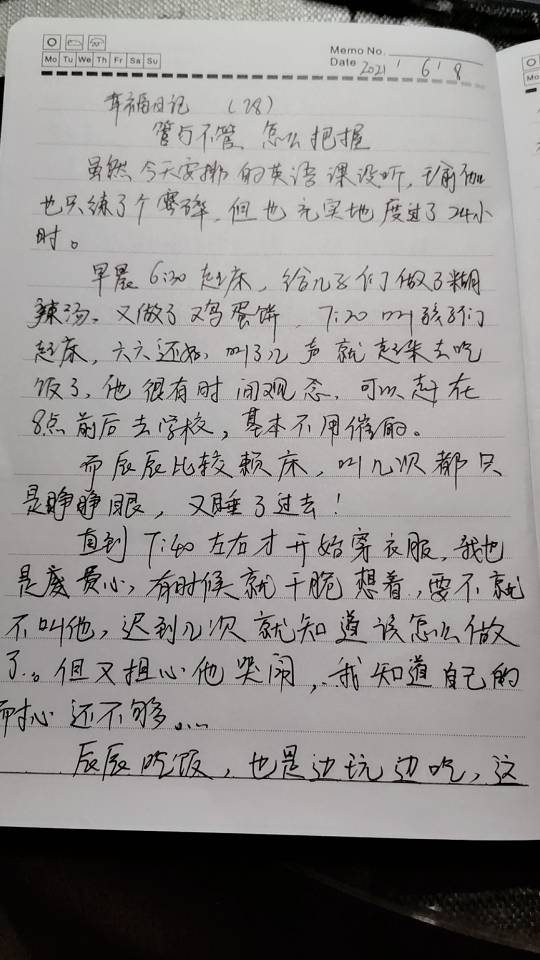 Mo Tu We Th Fr Sa Su
Memo No.
Date 2021 ' 6 ' 8
幸福日记 (28)
管与不管 怎么把握
虽然今天安排的英语课没听,瑜伽
也只练了个零碎,但也充实地度过了24小
时。
早晨6:30起床,给儿子们做了糊
辣汤、又做了鸡蛋饼,7:20叫孩子们
起床,六六还好,叫了几声就起来去吃
饭了,他很有时间观念,可以赶在
8点前后去学校,基本不用催的。
而辰辰比较赖床,叫几次都只
是睁睁眼,又睡了过去!
直到7:40左右才开始穿衣服,我也
是废费心,有时候就干脆想着,要不就
不叫他,迟到几次就知道该怎么做
了。但又担心他哭闹,我知道自己的
耐心还不够....
辰辰吃饭,也是边玩边吃,这